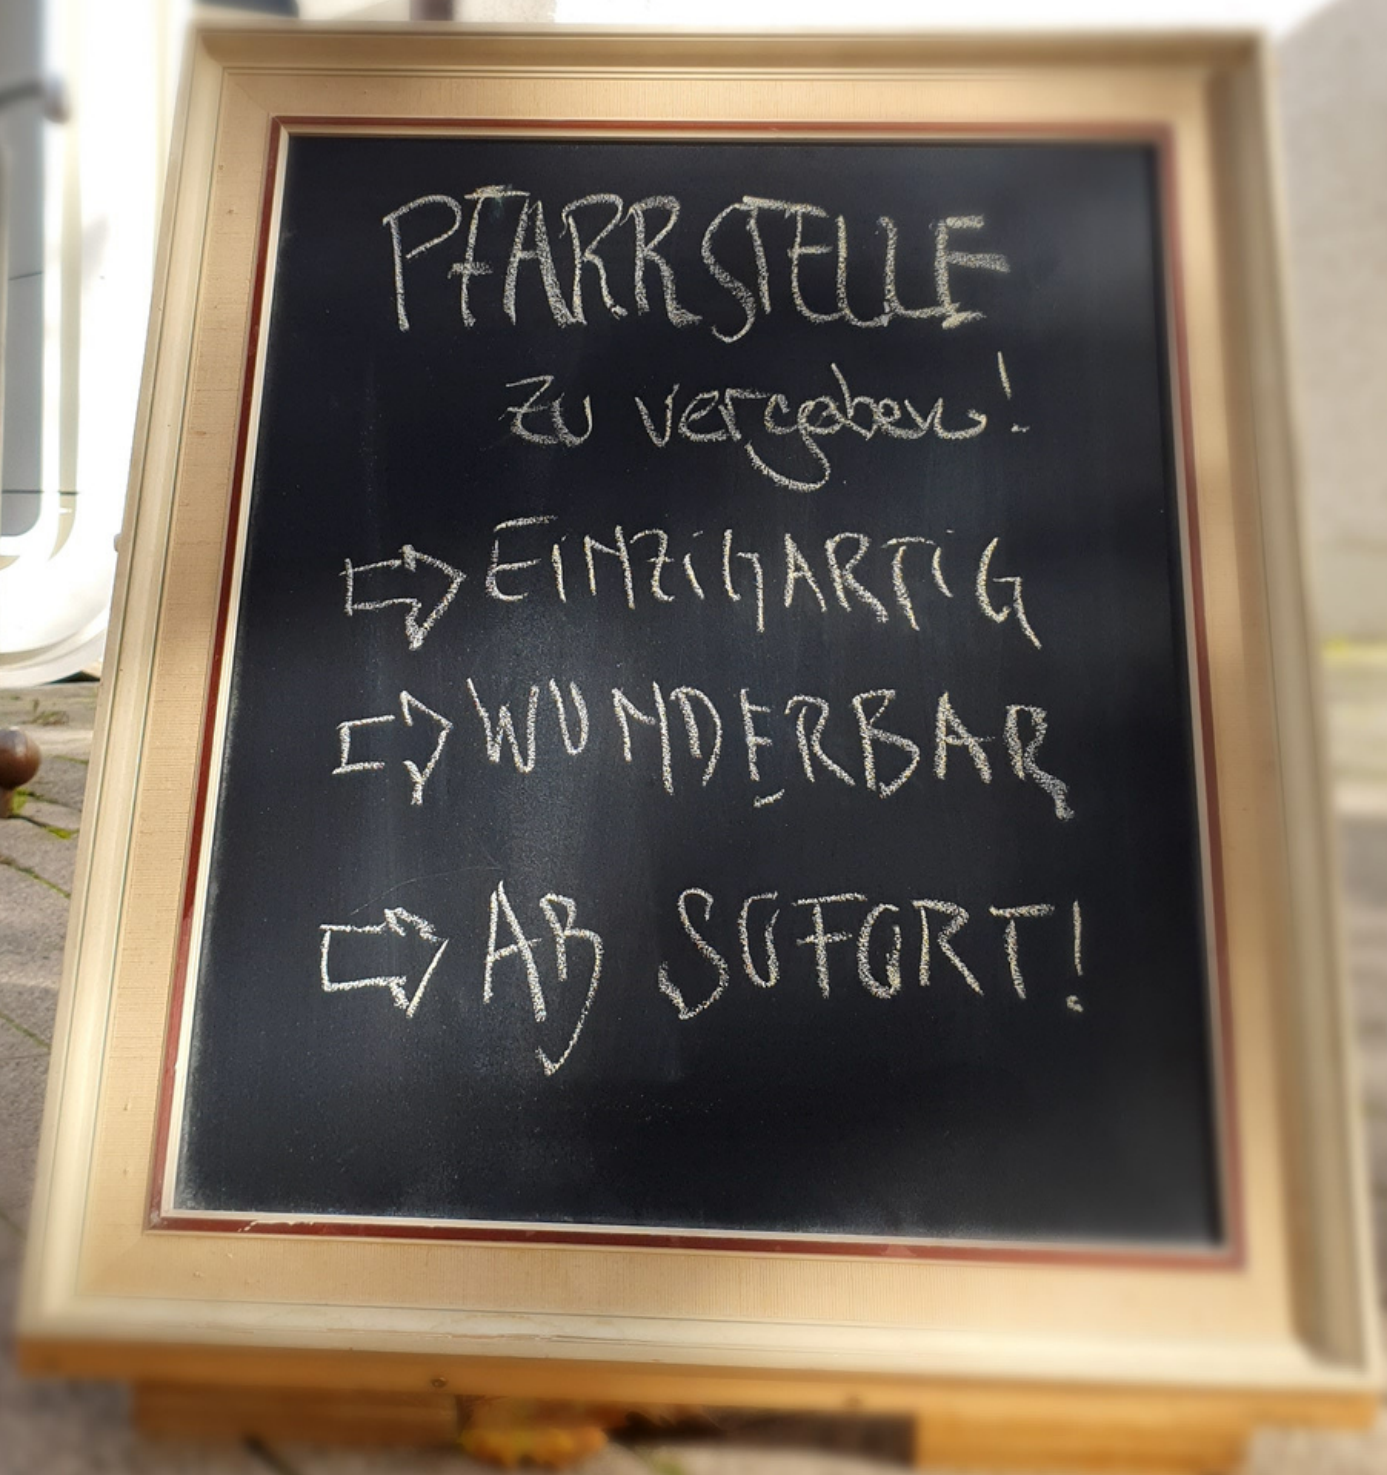 PFARRSTELLE
zu vergeben!
⇨ EiNZiGARTiG
⇨ WUNDERBAR
⇨ AB SOFORT!